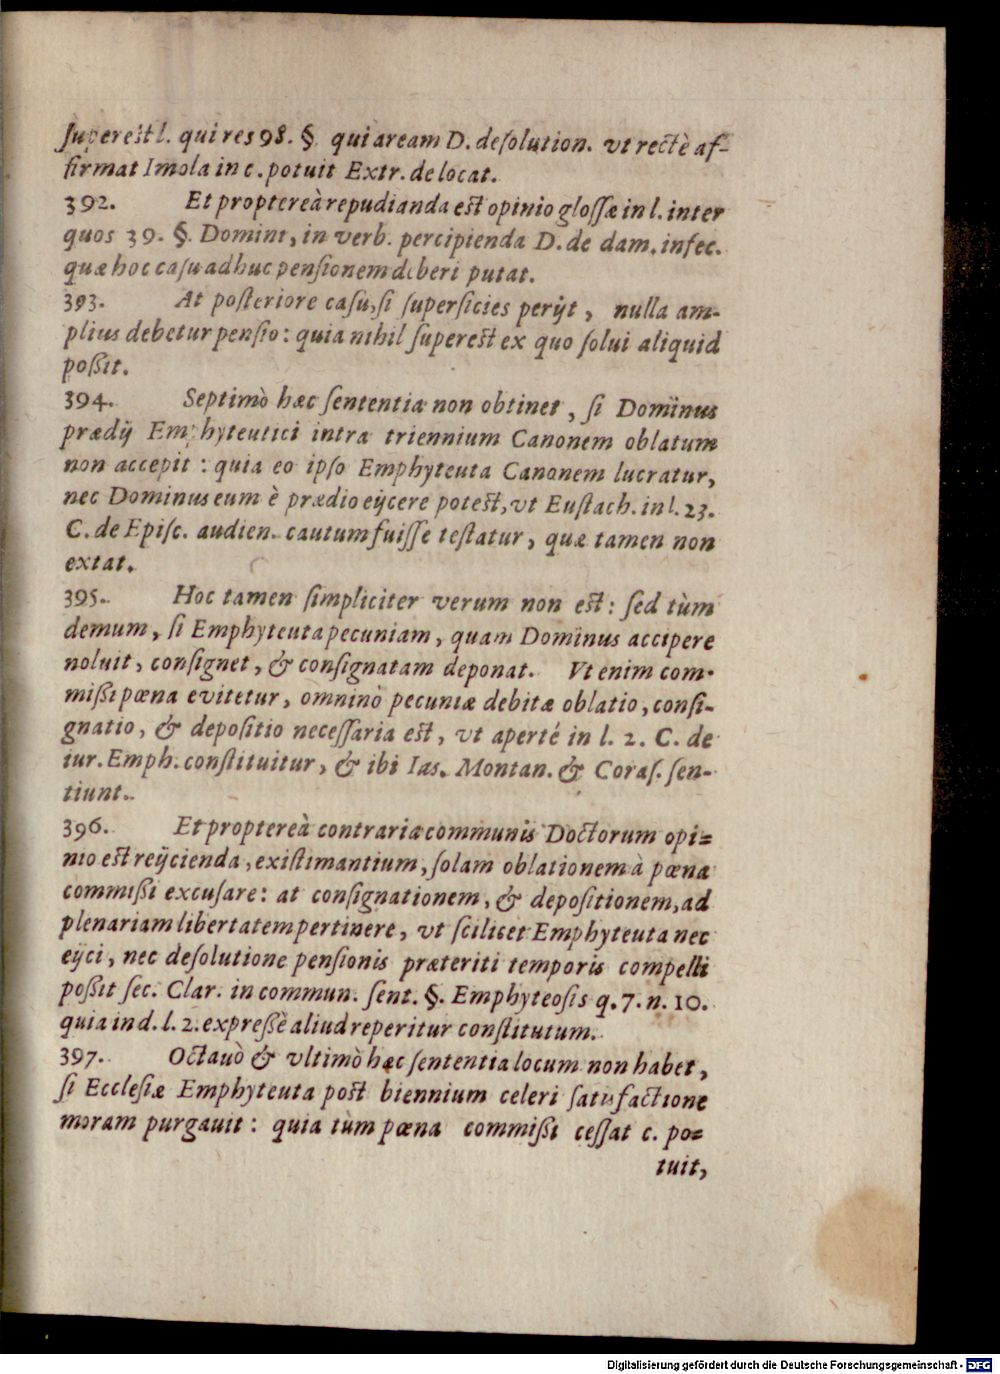 superest l. qui res 98. §. qui aream D. de solution. vt rectè af-
firmat Imola in c. potuit Extr. de locat.
392. Et propterea̍ repudianda est opinio glossæ in l. inter
quos 39. §. Domini, in verb. percipienda D. de dam. infec.
quæ hoc casu adhuc pensionem deberi putat.
393. At posteriore casu, si superficies perijt, nulla am-
plius debetur pensio: quia nihil superest ex quo solui aliquid
poßit.
394. Septimò hæc sententia non obtinet, si Dominus
prædij Emphyteutici intra triennium Canonem oblatum
non accepit: quia eo ipso Emphyteuta Canonem lucratur,
nec Dominus eum è prædio eijcere potest, vt Eustach. in l. 23.
C. de Episc. audien. cautum fuisse testatur, quæ tamen non
extat.
395. Hoc tamen simpliciter verum non est: sed tùm
demum, si Emphyteuta pecuniam, quam Dominus accipere
noluit, consignet, & consignatam deponat. Vt enim com-
mißi pœna evitetur, omninò pecuniæ debitæ oblatio, consi-
gnatio, & depositio necessaria est, vt aperté in l. 2. C. de
iur. Emph. constituitur, & ibi Ias. Montan. & Coras. sen-
tiunt.
396. Et proptereà contraria communis Doctorum opi-
nio est reijcienda, existimantium, solam oblationem à pœna
commißi excusare: at consignationem, & depositionem, ad
plenariam libertatem pertinere, vt scilicet Emphyteuta nec
eijci, nec de solutione pensionis præteriti temporis compelli
poßit sec. Clar. in commun. sent. §. Emphyteosis q. 7. n. 10.
quia in d. l. 2. expreßè aliud reperitur constitutum.
397. Octauò & vltimò hæc sententia locum non habet,
si Ecclesiæ Emphyteuta post biennium celeri satisfactione
moram purgauit: quia tùm pœna commißi cessat c. po-
tuit,
Digitalisierung gefördert durch die Deutsche Forschungsgemeinschaft - DFG